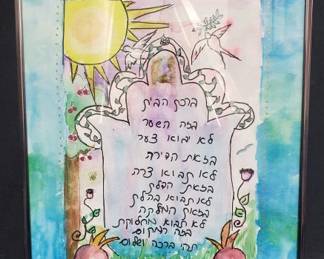 ברכת הבית
בזה השער
לא יבוא צער
בזאת הדירה
לא תבוא צרה
בזאת הדלת
לא תבוא בהלה
בזאת המחלקה
לא תבוא מחלוקת
בזה המקום
תהי ברכה ושלום